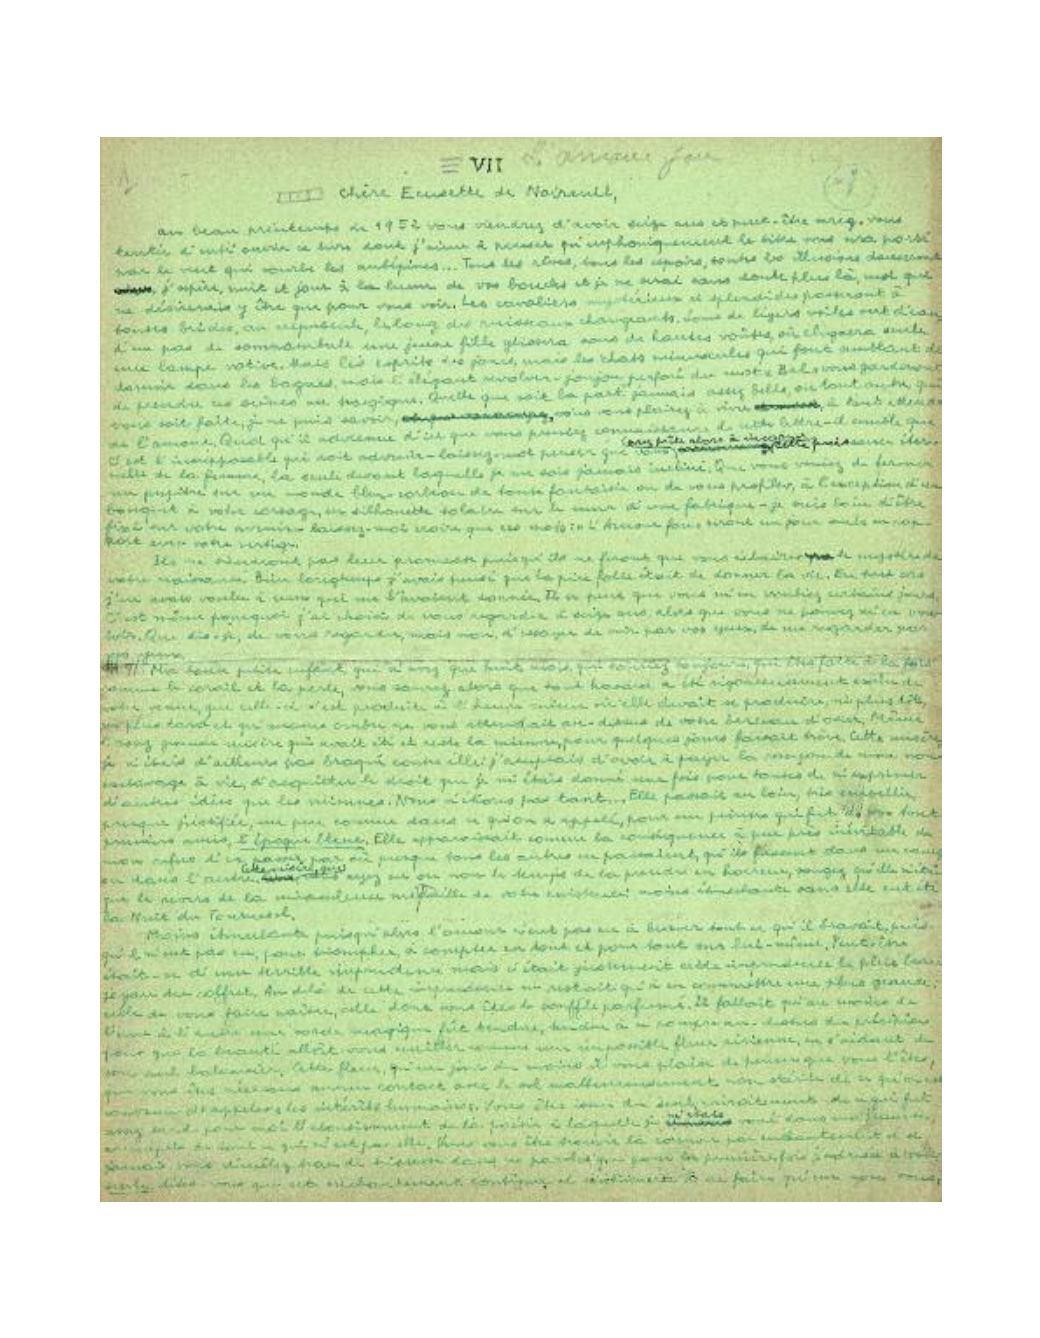 VII L'amour fou
Chère Ecusette de Noireuil,
Au beau printemps de 1952 vous viendrez d'avoir seize ans et peut-être serez-vous
tentée d'entr'ouvrir ce livre dont j'aime à penser qu'euphoniquement le titre vous sera porté
par le vent qui courbe les aubépines... Tous les rêves, tous les espoirs, toutes les illusions danseront
j'espère, nuit et jour à la lueur de vos boucles et je ne serai sans doute plus là, moi qui
ne désirerais y être que pour vous voir. Les cavaliers mystérieux et splendides passeront à
toutes brides, au crépuscule, le long des ruisseaux changeants. Sous de légers voiles vert d'eau,
d'un pas de somnambule une jeune fille glissera sous de hautes voûtes, où clignera seule
une lampe votive. Mais les esprits des joncs, mais les chats minuscules qui font semblant de
dormir dans les bagues, mais l'élégant revolver-joujou perforé du mot « Bal » vous garderont
de prendre ces scènes au tragique. Quelle que soit la part jamais assez belle, ou tout autre, qui
vous soit faite, je ne puis savoir, vous vous plairez à vivre, à tout attendre
de l'amour. Quoi qu'il advienne d'ici que vous preniez connaissance de cette lettre - il semble que
c'est l'insupposable qui doit advenir - laissez-moi penser que vous serez prête alors à incarner cette puissance éter-
nelle de la femme, la seule devant laquelle je me sois jamais incliné. Que vous veniez de fermer
un pupitre sur un monde bleu-corbeau de toute fantaisie ou de vous profiler, à l'exception d'un
bouquet à votre corsage, en silhouette solaire sur le mur d'une fabrique - je suis loin d'être
fixé sur votre avenir - laissez-moi croire que ces mots : « L'amour fou » seront un jour seuls en rap-
port avec votre vertige.
Ils ne tiendront pas leur promesse puisqu'ils ne feront que vous éclairer le mystère de
votre naissance. Bien longtemps j'avais pensé que la pire folie était de donner la vie. En tout cas
j'en avais voulu à ceux qui me l'avaient donnée. Il se peut que vous m'en vouliez certains jours.
C'est même pourquoi j'ai choisi de vous regarder à seize ans alors que vous ne pouvez m'en vou-
loir. Que dis-je, de vous regarder, mais non, d'essayer de voir par vos yeux, de me regarder par
vos yeux.
Ma toute petite enfant qui n'avez que huit mois, qui souriez toujours, qui êtes faite à la fois
comme le corail et la perle, vous saurez alors que tout hasard a été rigoureusement exclu de
votre venue, que celle-ci s'est produite à l'heure même où elle devait se produire, ni plus tôt,
ni plus tard et qu'aucune ombre ne vous attendait au-dessus de votre berceau d'osier. Même
l'assez grande misère qui avait été et reste la mienne, pour quelques jours faisait trêve. Cette misère,
je n'étais d'ailleurs pas braqué contre elle : j'acceptais d'avoir à payer la rançon de mon non-
esclavage à vie, d'acquitter le droit que je m'étais donné une fois pour toutes de n'exprimer
d'autres idées que les miennes. Nous n'étions pas tant... Elle passait au loin, très embellie,
presque justifiée, un peu comme dans ce qu'on a appelé, pour un peintre qui fut de vos tout
premiers amis, l'époque bleue. Elle apparaissait comme la conséquence à peu près inévitable de
mon refus d'en passer par où presque tous les autres en passaient, qu'ils fussent dans un camp
ou dans l'autre. Cette misère, que vous ayez eu ou non le temps de la prendre en horreur, songez qu'elle n'était
que le revers de la miraculeuse médaille de votre existence : moins étincelante sans elle eût été
la Nuit du Tournesol.
Moins étincelante puisqu'alors l'amour n'eût pas eu à braver tout ce qu'il bravait, puis-
qu'il n'eût pas eu, pour triompher, à compter en tout et pour tout sur lui-même. Peut-être
était-ce d'une terrible imprudence mais c'était justement cette imprudence le plus beau
joyau du coffret. Au delà de cette imprudence ne restait qu'à en commettre une plus grande :
celle de vous faire naître, celle dont vous êtes le souffle parfumé. Il fallait qu'au moins de
l'une à l'autre une corde magique fût tendue, tendue à se rompre au-dessus du précipice
pour que la beauté allât vous cueillir comme une impossible fleur aérienne, en s'aidant de
son seul balancier. Cette fleur, qu'un jour du moins il vous plaise de penser que vous l'êtes,
que vous êtes née sans aucun contact avec le sol malheureusement non stérile de ce qu'on est
convenu d'appeler « les intérêts humains ». Vous êtes issue du seul miroitement de ce qui fut
assez tard pour moi l'aboutissement de la poésie à laquelle je m'étais voué dans ma jeunesse,